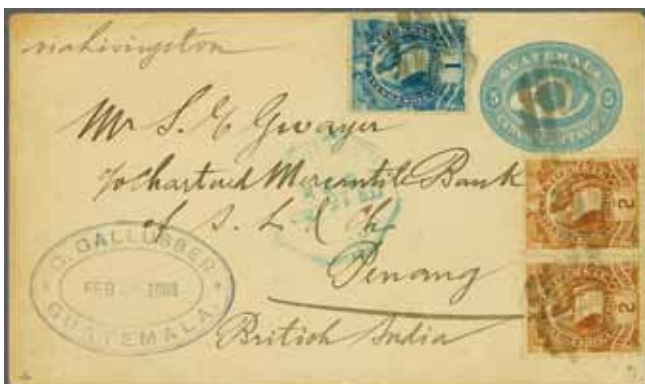 via Livingston
1
GUATEMALA
5 5
CINCO CENTAVOS
Mr S. E. Gwayer
c/o Chartered Mercantile Bank
of I. L & Ch.
Penang
British India
2
2
GALLUSSER
FEB
GUATEMALA